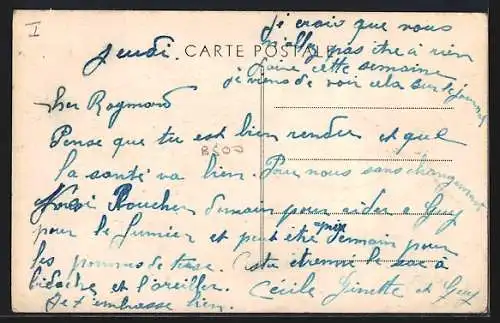 I
Jeudi.
CARTE POSTALE
je crois que nous
pas être a rien
faire cette semaine
je viens de voir cela sur le journal
Cher Raymond
Pense que tu est bien rendu et que
la santé va bien. Pour nous sans changement
8500
Boucher demain pour aider a Guy
pour le fumier et peut être demain pour
les pommes de terre. étrenne le sac à
et l'oreiller.
Je t'embrasse bien.
Cécile Ginette et Guy